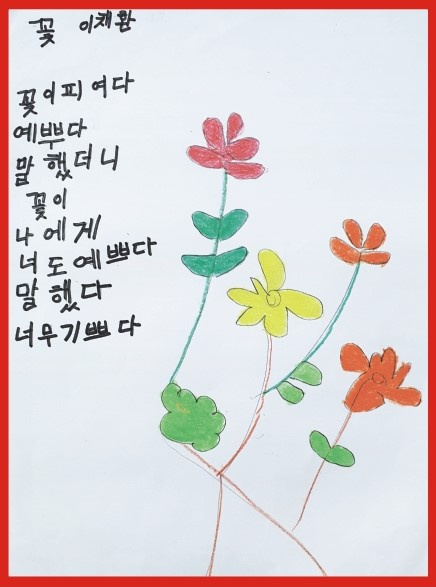 꽃 이채환
꽃이피여다
예쁘다
말했더니
꽃이
나에게
너도예쁘다
말했다
너무기쁘다